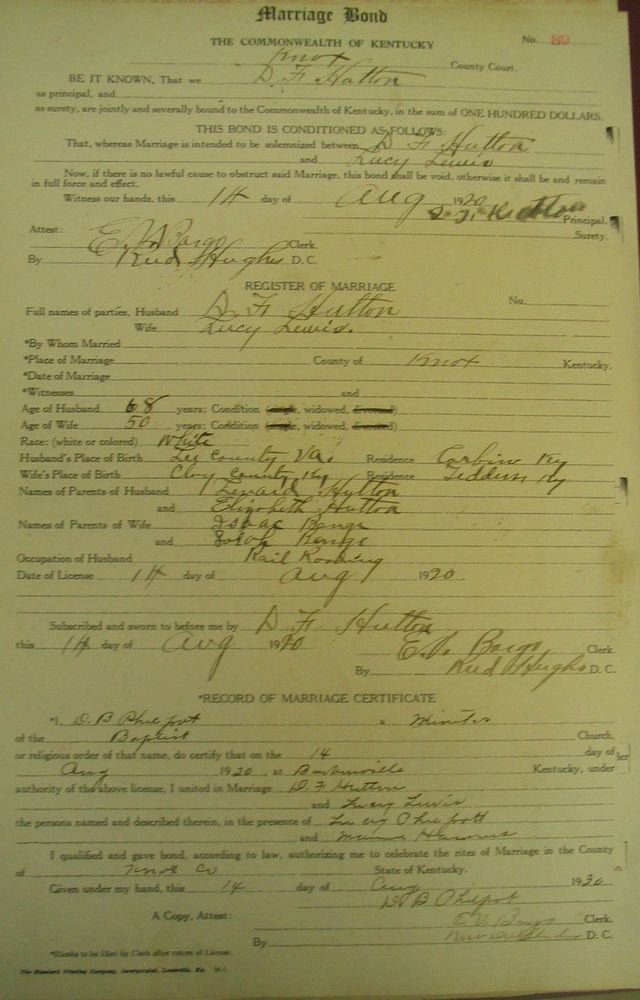 Marriage Bond
No.
THE COMMONWEALTH OF KENTUCKY
Knox County Court.
BE IT KNOWN, That we D. F. Hutton
as principal, and
as surety, are jointly and severally bound to the Commonwealth of Kentucky, in the sum of ONE HUNDRED DOLLARS.
THIS BOND IS CONDITIONED AS FOLLOWS:
That, whereas Marriage is intended to be solemnized between D F Hutton
and Lucy Lewis
Now, if there is no lawful cause to obstruct said Marriage, this bond shall be void, otherwise it shall be and remain
in full force and effect.
Witness our hands, this 14 day of Aug 1920
D. F. Hutton Principal.
Surety.
Attest: Clerk.
By Hughs D. C.
REGISTER OF MARRIAGE
No.
Full names of parties, Husband D. F. Hutton
Wife Lucy Lewis.
*By Whom Married
*Place of Marriage County of Knox Kentucky.
*Date of Marriage
*Witnesses and
Age of Husband 68 years; Condition (single, widowed, divorced)
Age of Wife 50 years; Condition (single, widowed, divorced)
Race: (white or colored) White
Husband's Place of Birth Lee County Va. Residence Corbin Ky
Wife's Place of Birth Clay County Ky Residence Ky
Names of Parents of Husband Hutton
and Elizabeth Hutton
Names of Parents of Wife Isaac Benge
and Benge
Occupation of Husband Rail Roading
Date of License 14 day of Aug 1920
Subscribed and sworn to before me by D F Hutton
this 14 day of Aug 1920
Clerk.
By Hughs D. C.
*RECORD OF MARRIAGE CERTIFICATE
*I, D. B Philpot a Minister
of the Baptist Church,
or religious order of that name, do certify that on the 14 day of
Aug 1920, at Barbourville Kentucky, under
authority of the above license, I united in Marriage D. F. Hutton
and Lucy Lewis
the persons named and described therein, in the presence of Lucy Philpott
and
I qualified and gave bond, according to law, authorizing me to celebrate the rites of Marriage in the County
of Knox Co State of Kentucky.
Given under my hand, this 14 day of Aug 1920
D. B Philpot
A Copy, Attest: Clerk.
By D. C.
*Blanks to be filled by Clerk after return of License.
The Standard Printing Company, Incorporated, Louisville, Ky.